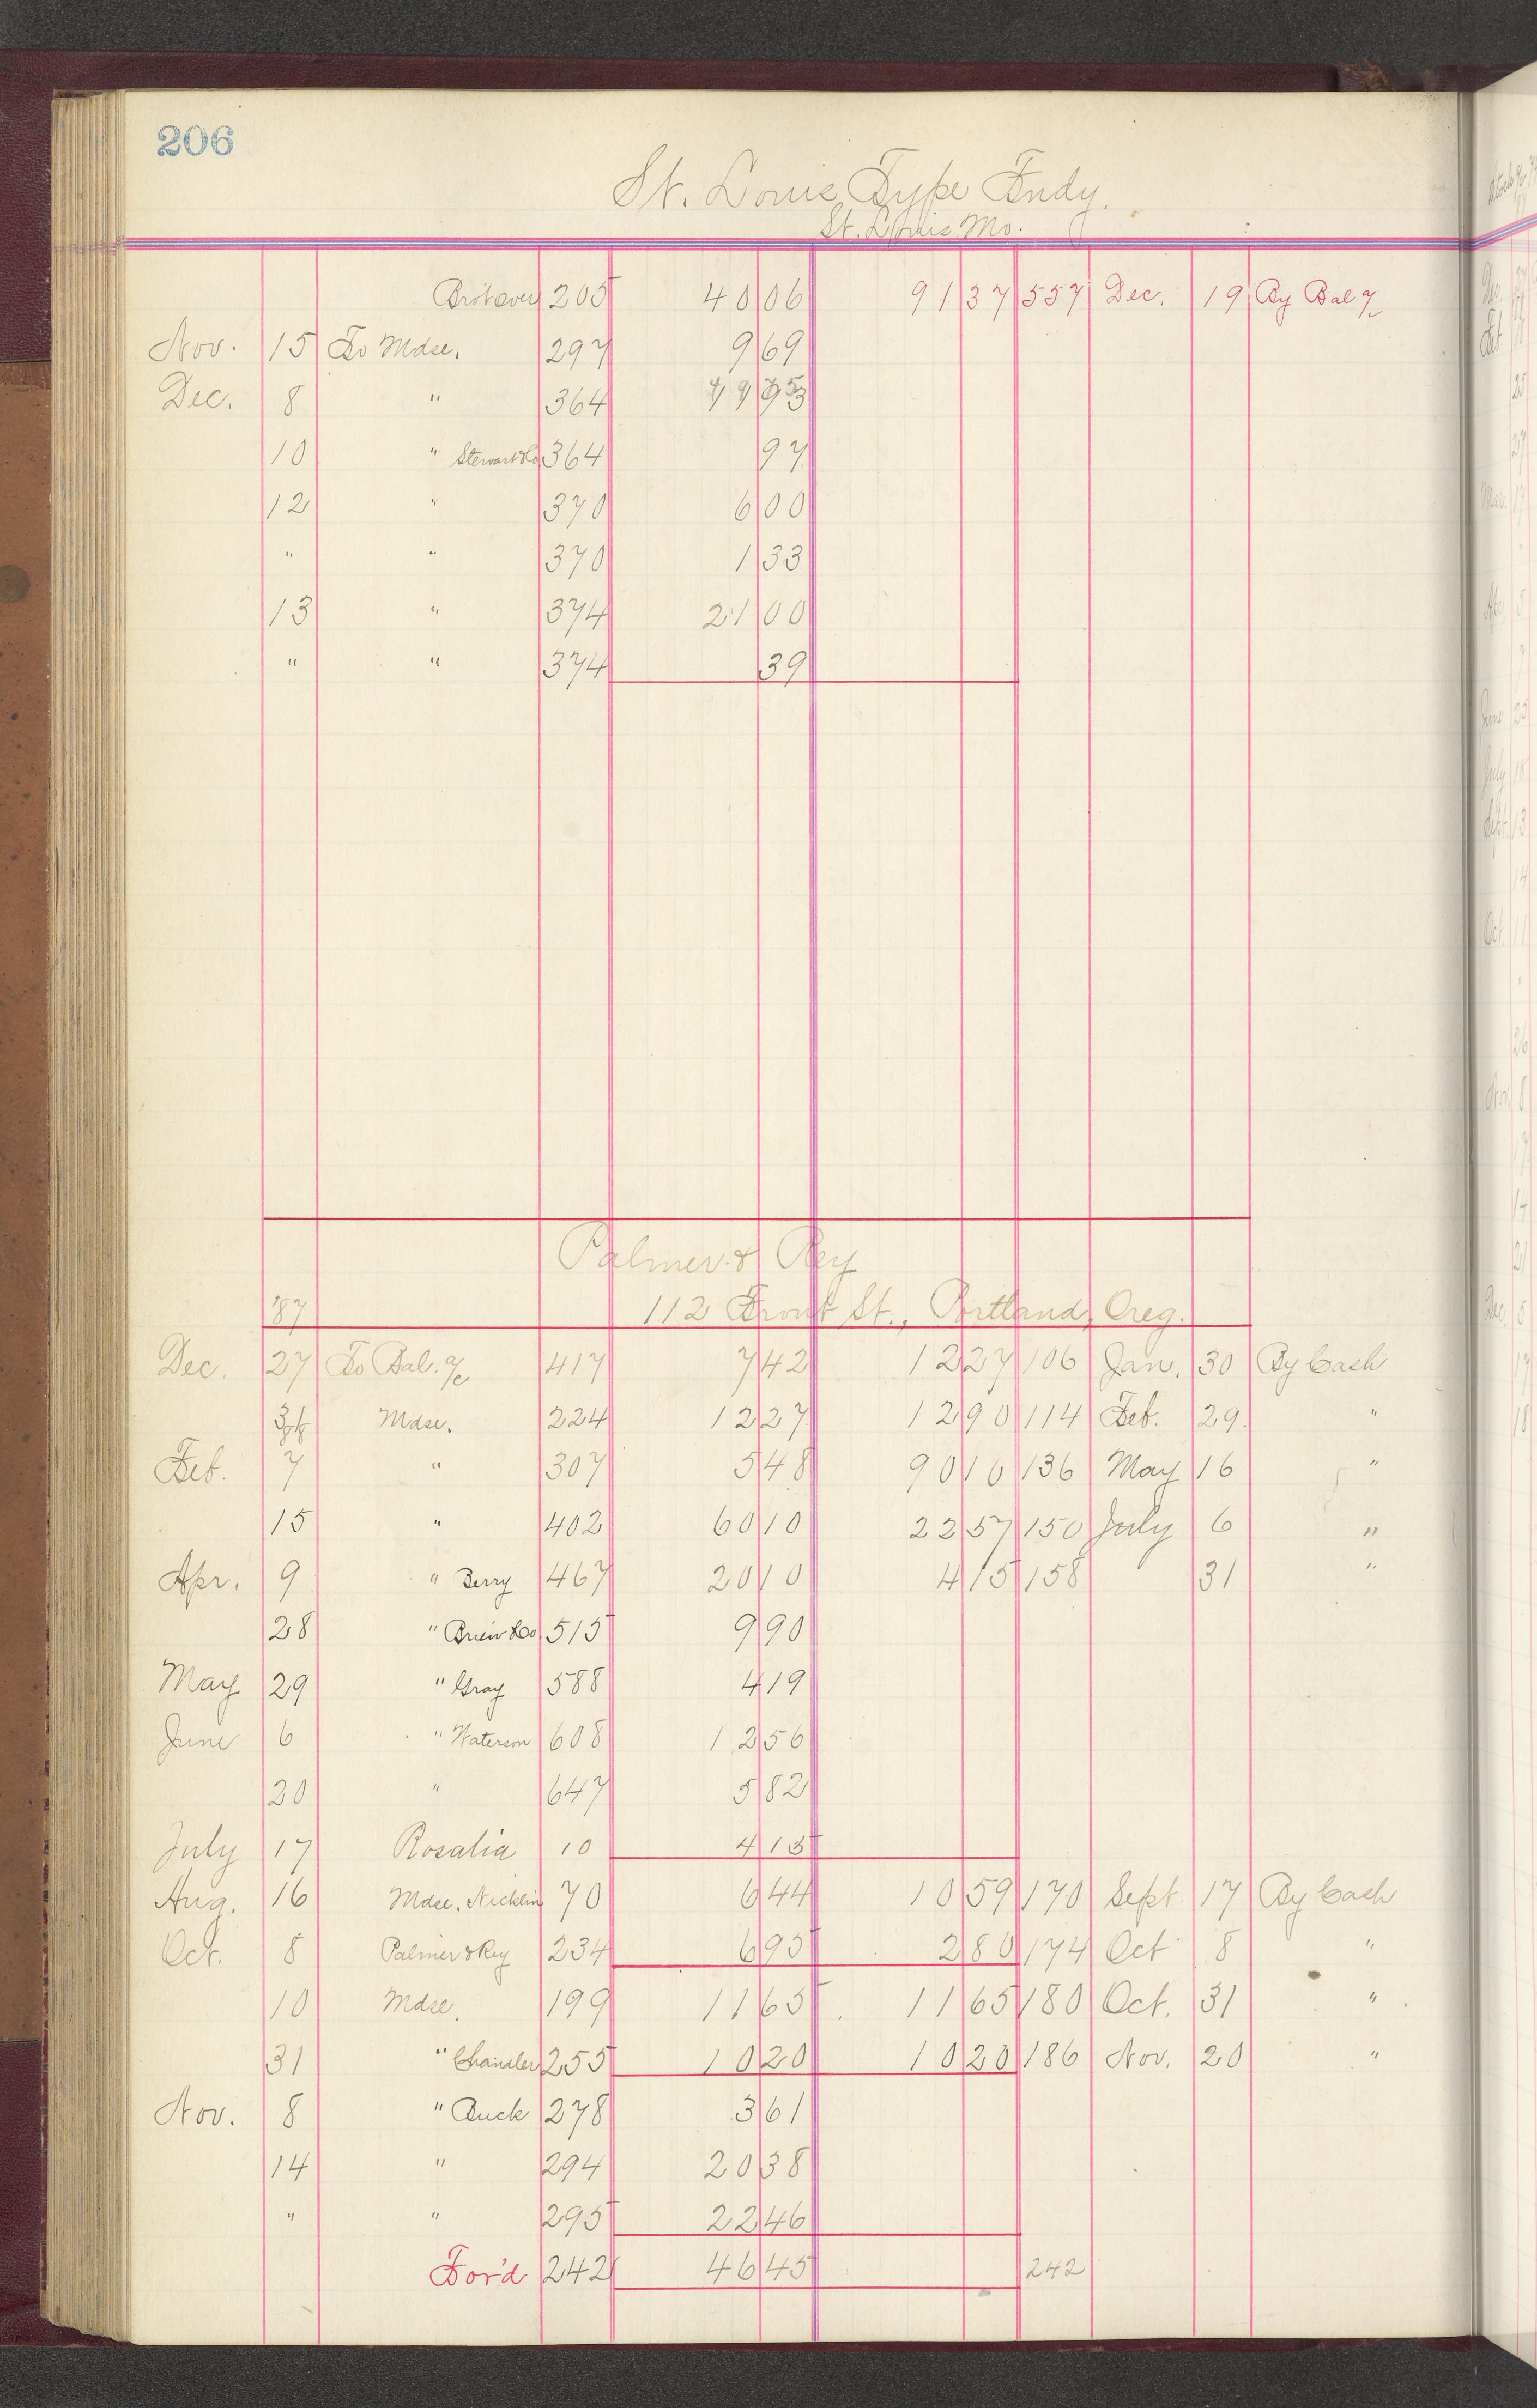 206
St. Louis Type Fndy.
St. Louis Mo.
Bro't over 205 40 06 91 37 557 Dec. 19 By Bal a/c
Nov. 15 To Mdse. 297 9 69
Dec. 8 " 364
10 " Stewart & Co 364 97
12 " 370 6 00
" " 370 1 33
13 " 374 21 00
" " 374 39
Palmer & Rey
'87 112 Front St., Portland, Oreg.
Dec. 27 To Bal. a/c 417 7 42 12 27 106 Jan. 30 By Cash
Mdse. 224 12 27 12 90 114 Feb. 29 "
Feb. 7 " 307 5 48 90 10 136 May 16 "
15 " 402 60 10 22 57 150 July 6 "
Apr. 9 " Berry 467 20 10 4 15 158 31 "
28 " & Co 515 9 90
May 29 " Gray 588 4 19
June 6 " Waterson 608 12 56
20 " 647 5 82
July 17 Rosalia 10 4 15
Aug. 16 Mdse. Nicklin 70 6 44 10 59 170 Sept. 17 By Cash
Oct. 8 Palmer & Rey 234 6 95 2 80 174 Oct 8 "
10 Mdse. 199 11 65 11 65 180 Oct. 31 "
31 " Chandler 255 10 20 10 20 186 Nov. 20 "
Nov. 8 " Buck 278 3 61
14 " 294 20 38
" " 295 22 46
For'd 242 46 45 242